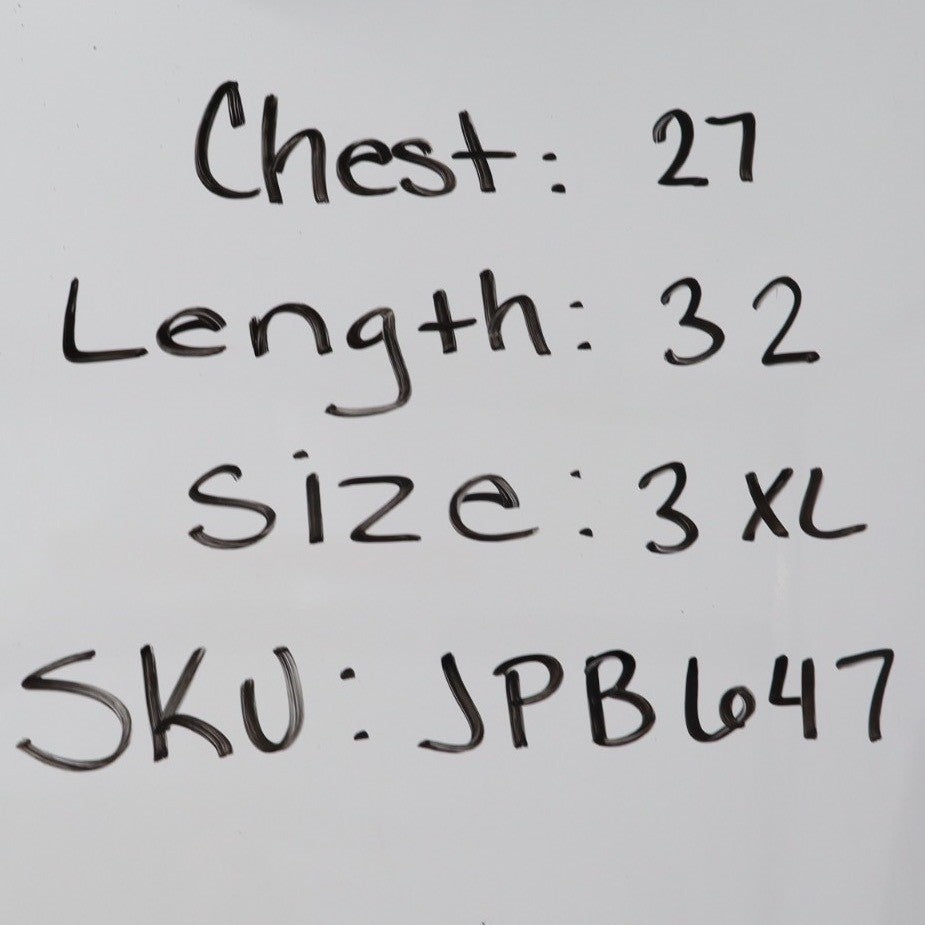 Chest: 27
Length: 32
Size: 3XL
SKU: JPB647